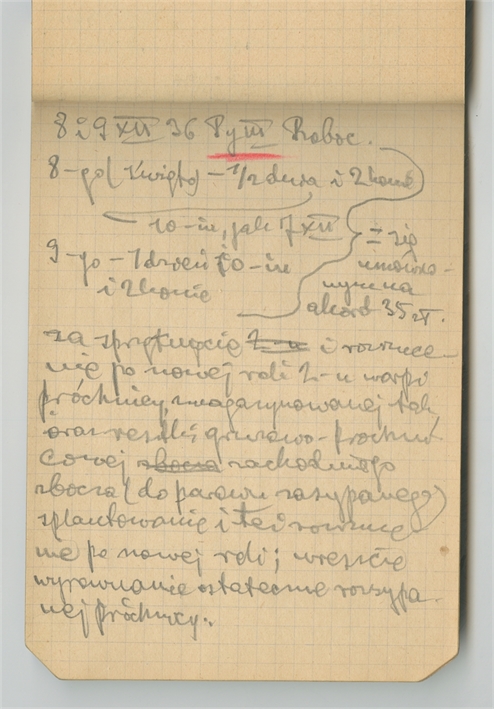 8 i 9 XII 36 Py III Roboc.
8-go (święto) – 1/2 dnia i 2 konie
10-iu, jak 7 XII
9-go – 1 dzień 10-iu
i 2 konie
= się
umówio-
nym na
akord 35 zł.
za sprzątnięcie 2-u i rozrzuce-
nie po nowej roli 2-u warp
próchnicy, zmagazynowanej tak
oraz resztki gruzowo-próchni
cowej zbocza zachodniego
zbocza (do parowu zasypanego)
splantowanie i też rozrzuce
nie po nowej roli; wreszcie
wyrównanie ostateczne rozsypa-
nej próchnicy.